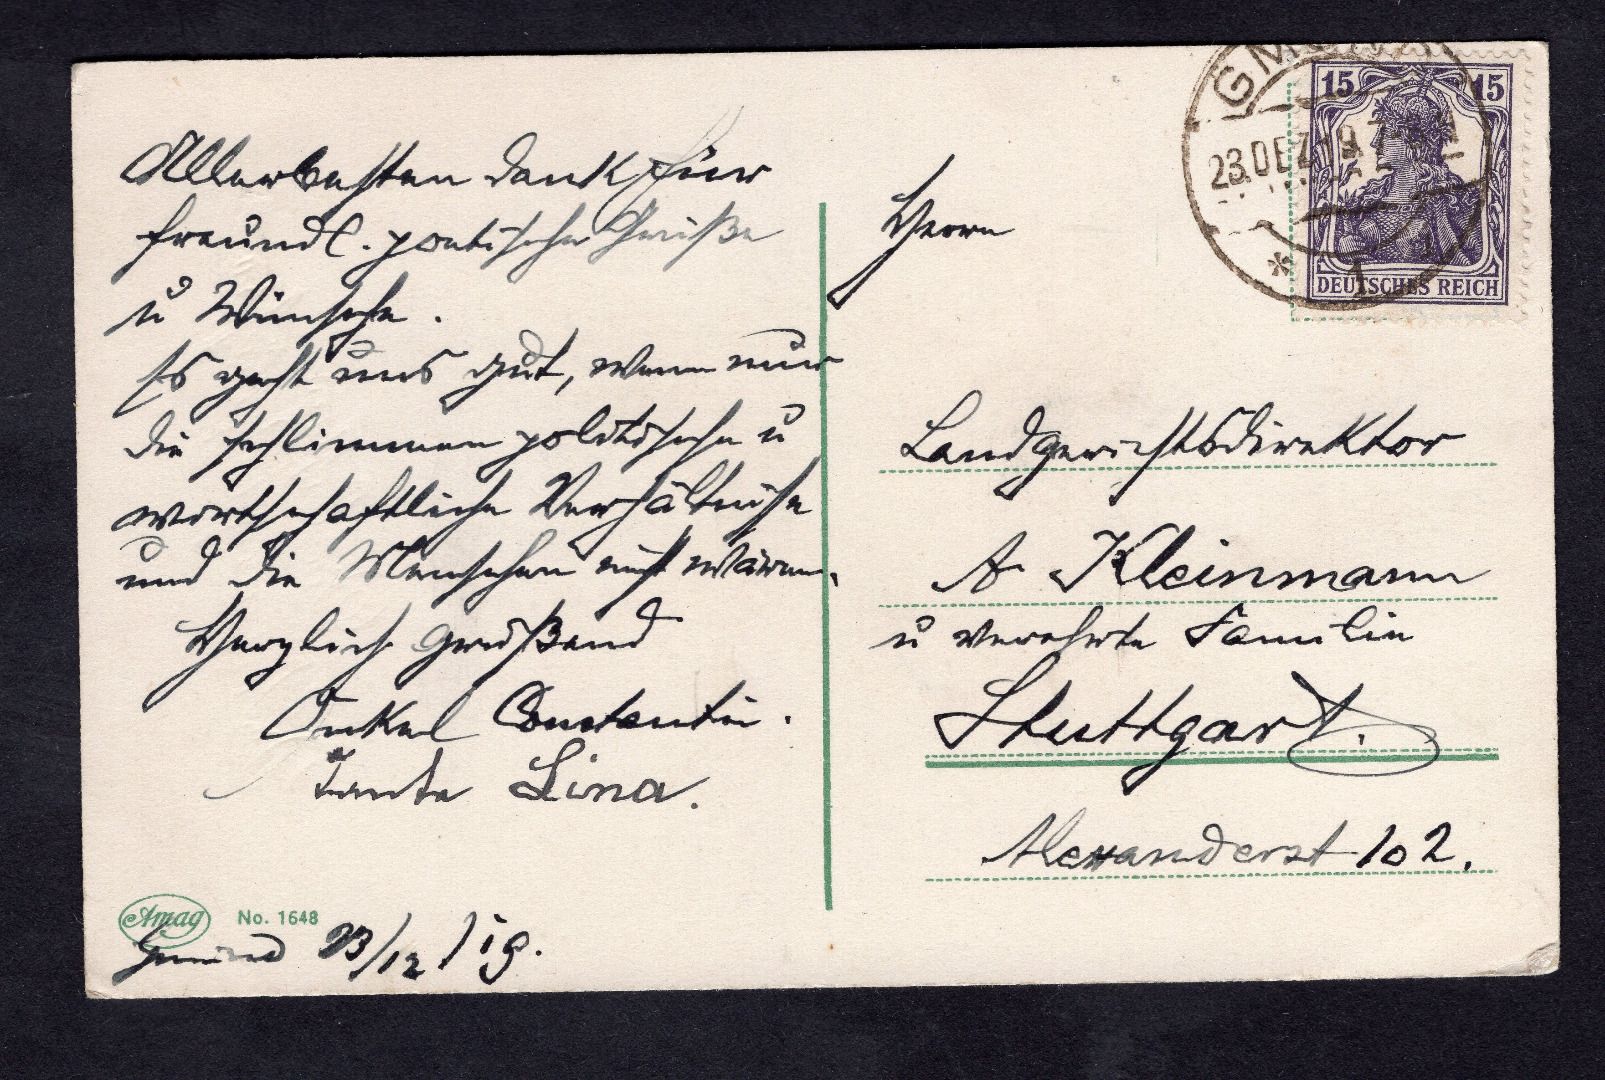 Allerbesten Dank für
freundl. poetische Grüße
u Wünsche.
Es geht uns gut, wenn nur
die schlimmen politische u
wirtschaftliche Verhältnisse
und die Menschen nicht wären.
Herzlich grüßend
Onkel Constantin.
Tante Lina.
Amag No. 1648
Gmünd 23/12 19.
GMÜND
23.DEZ.19.7-8N
* 1
15 15
DEUTSCHES REICH
Herrn
Landgerichtsdirektor
A Kleinmann
u verehrte Familie
Stuttgart.
Alexanderst 102.